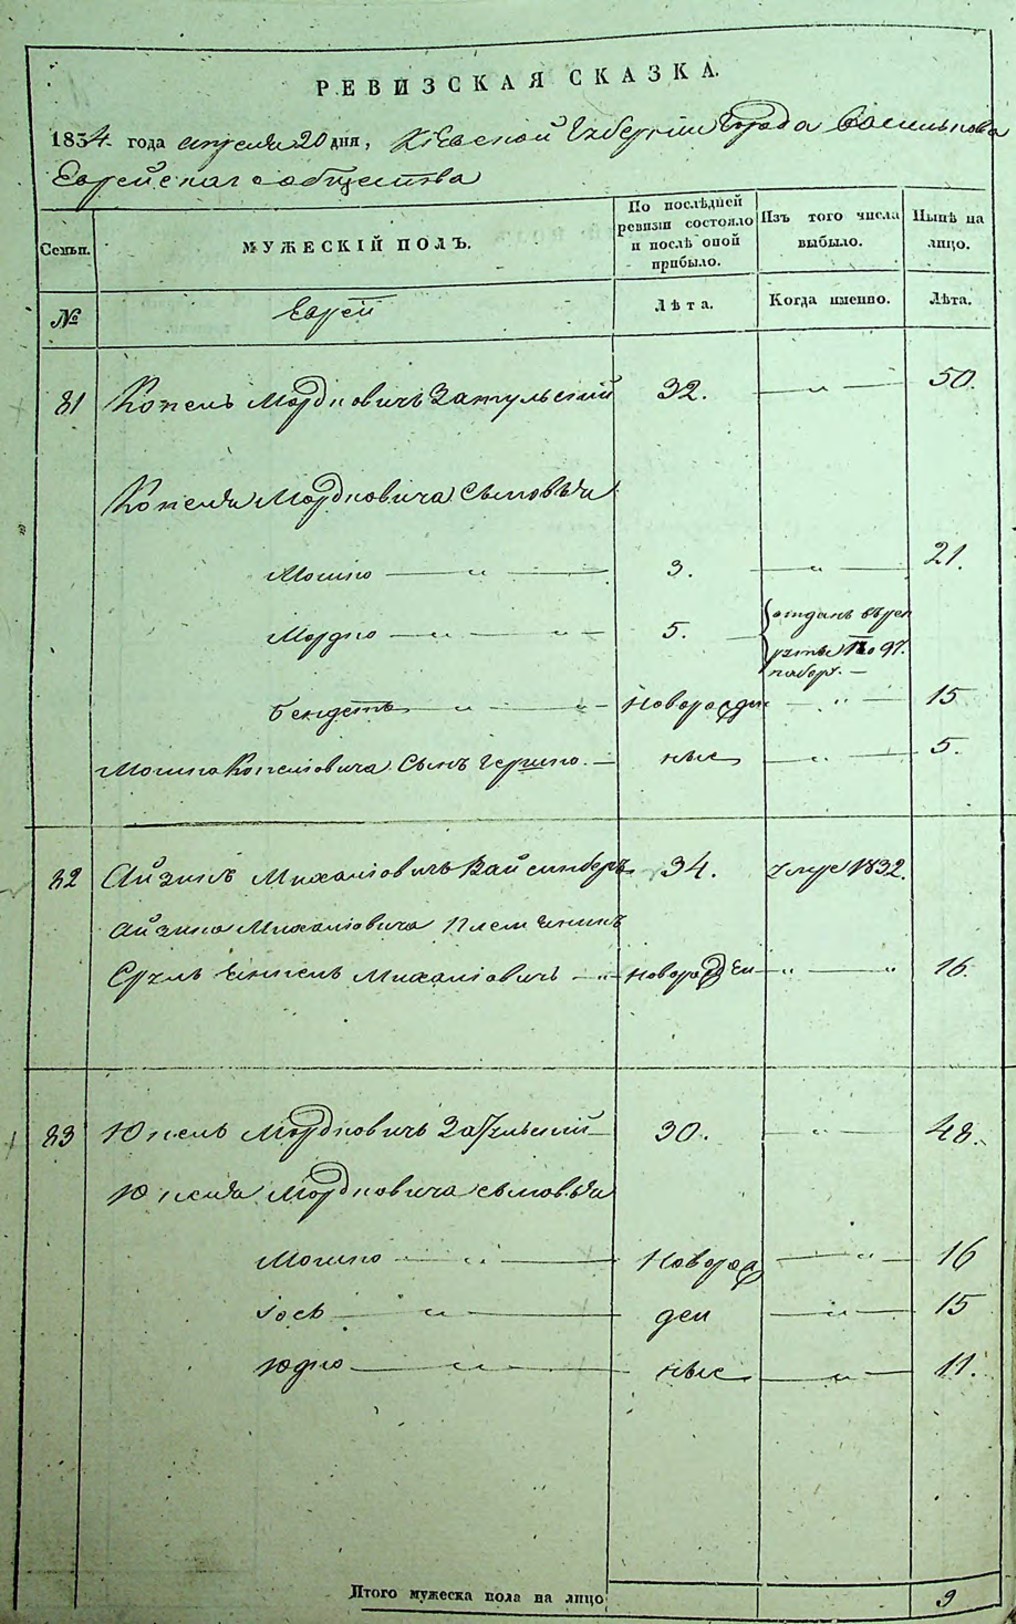 РЕВИЗСКАЯ СКАЗКА.
1834 года апреля 20 дня, Кіевской Губерніи Города Василькова
Еврейскаго общества
Семьи. МУЖЕСКІЙ ПОЛЪ. По послѣдней ревизіи состояло и послѣ оной прибыло. Изъ того числа выбыло. Нынѣ на лицо.
№ Евреи Лѣта. Когда именно. Лѣта.
81 Копель Мордковичъ Затульскій 32. — „ — 50.
Копеля Мордковича сыновья
Мошко — „ — 3. — „ — 21.
Мордко — „ — „ — 5. отданъ въ рек
руты по 97.
наборъ. —
Бендетъ — „ — „ — Новорожден — „ — 15
Мошка Копелiовича Сынъ Гершко. — ные — „ — 5.
82 Айзикъ Михалiовичъ Вайсинберъ 34. умре 1832.
Айзика Михалiовича Племенникъ
Сруль Михалiовичъ — „ — новорожден — „ — „ 16.
83 Юкель Мордковичъ Затульскій — 30. — „ — 48.
Юкеля Мордковича сыновья
Мошко — „ — Неворож — „ — 16
Іось — „ — ден — „ — 15
Юдко — „ — ные — „ — 11.
Итого мужеска пола на лицо 9